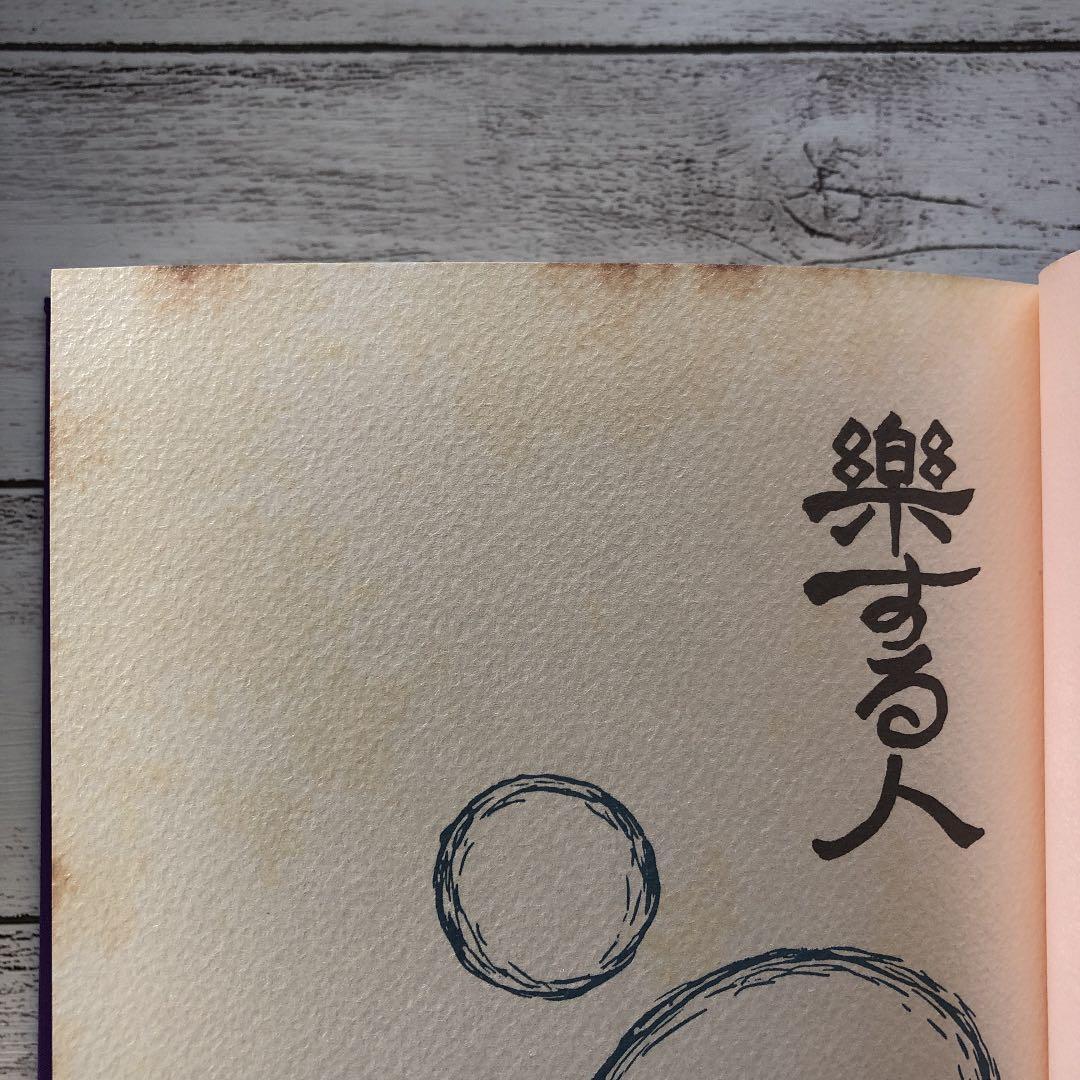 樂する人